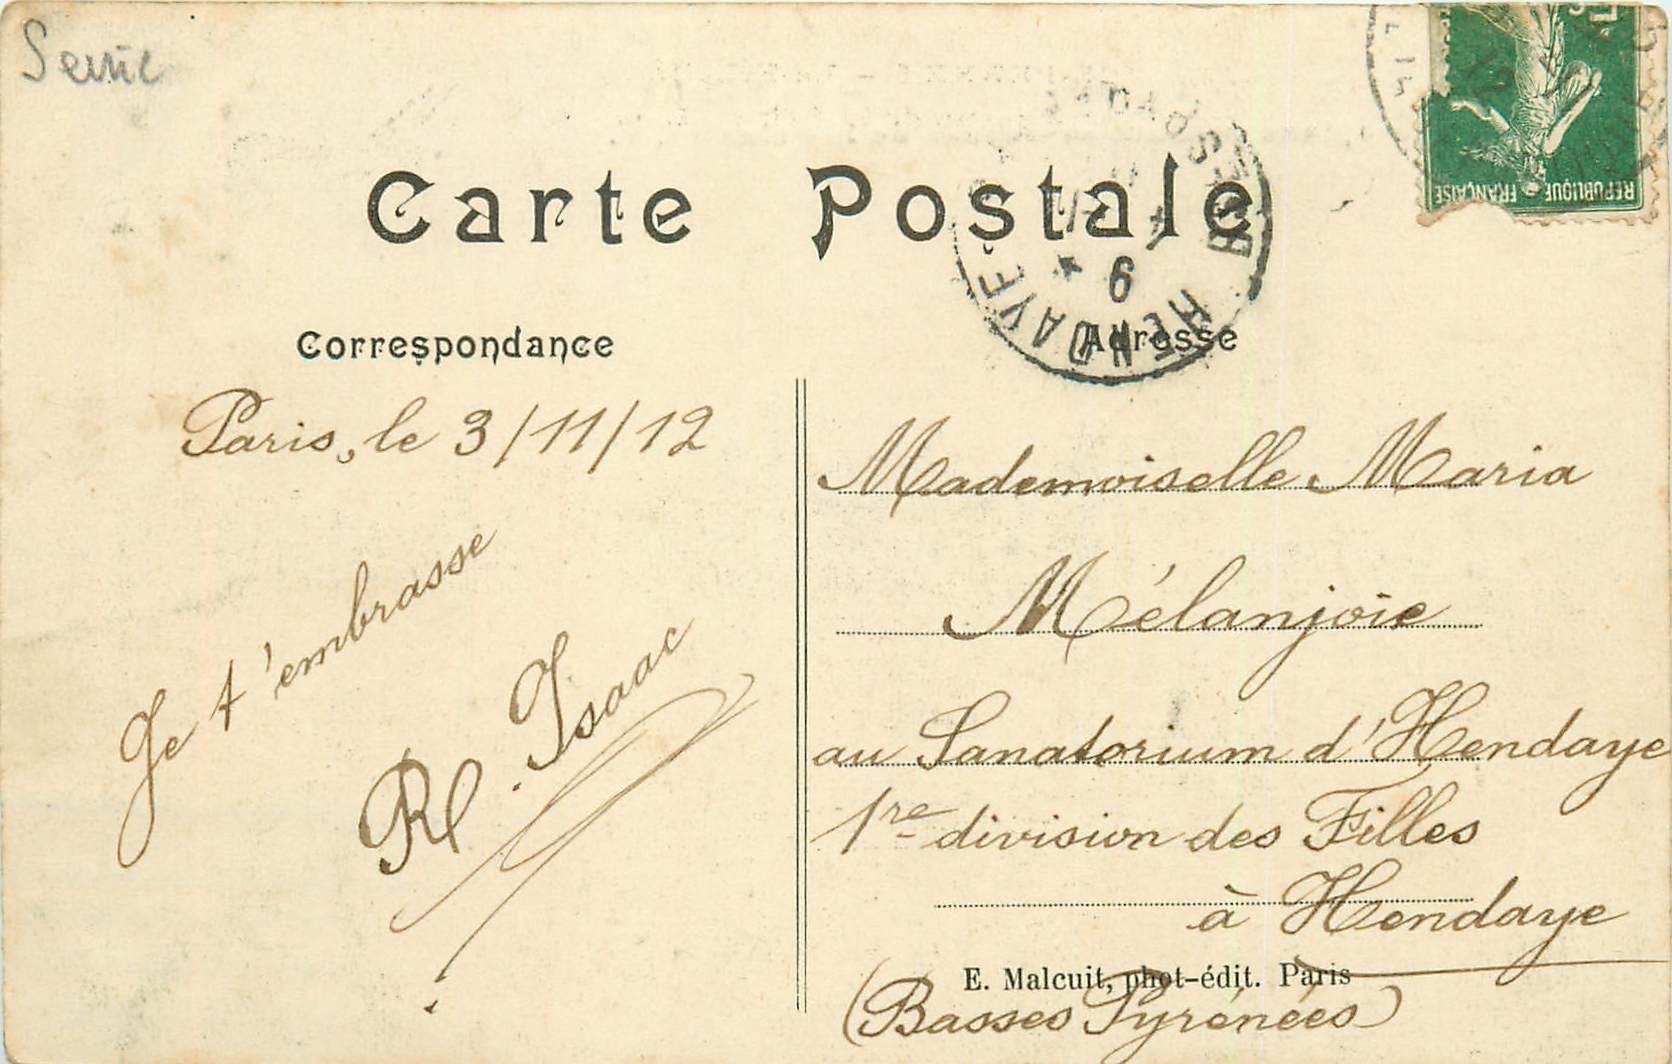 Seine
Carte Postale
Correspondance
Adresse
HENDAYE
9
12
REPUBLIQUE FRANÇAISE
Paris, le 3/11/12
Je t'embrasse
R. Isaac
Mademoiselle Maria
Mélanjoie
au Sanatorium d'Hendaye
1re division des Filles
à Hendaye
E. Malcuit, phot-édit. Paris
(Basses Pyrénées)